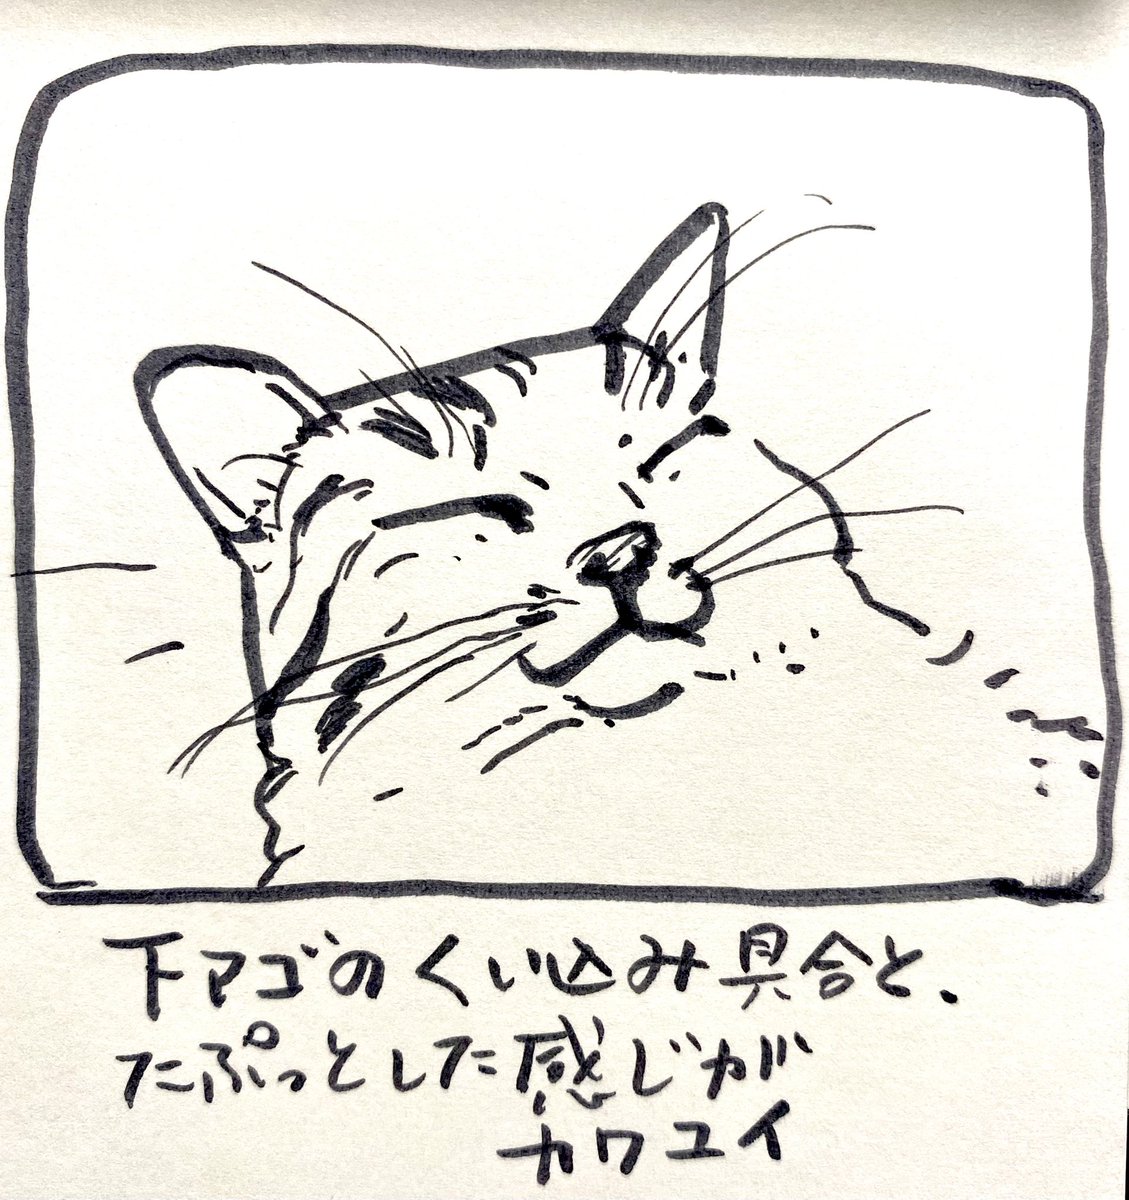 下アゴのくい込み具合と、
たぷっとした感じが
カワユイ